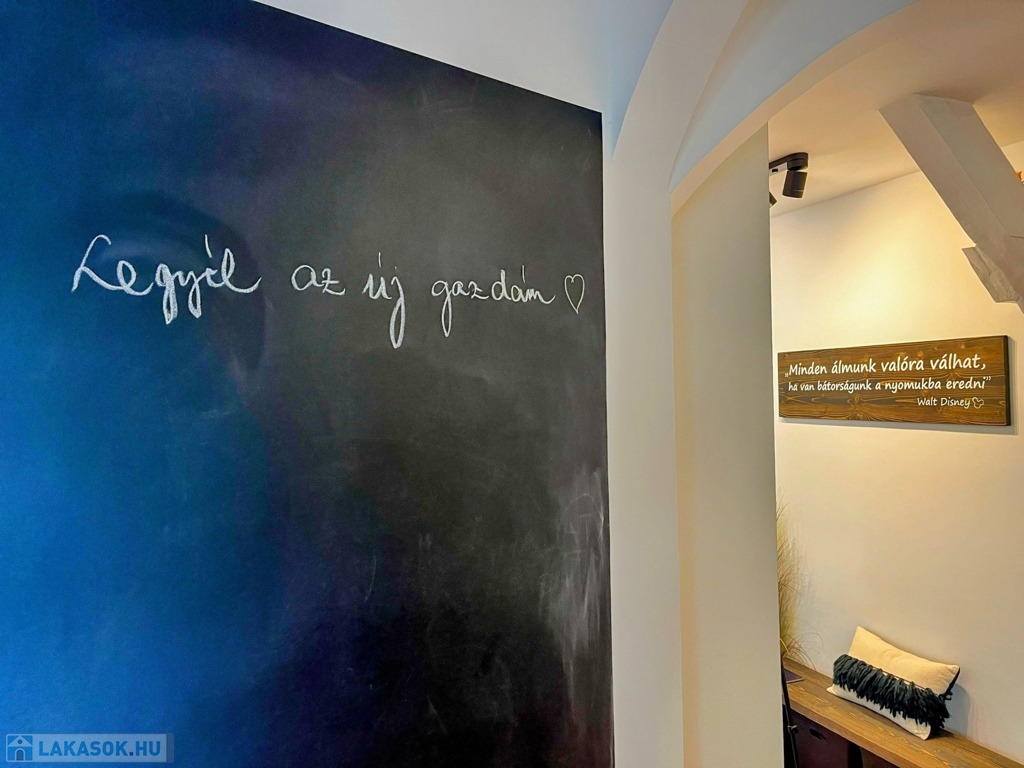 Legyél az új gazdám ♡
„Minden álmunk valóra válhat,
ha van bátorságunk a nyomukba eredni”
Walt Disney
LAKASOK.HU